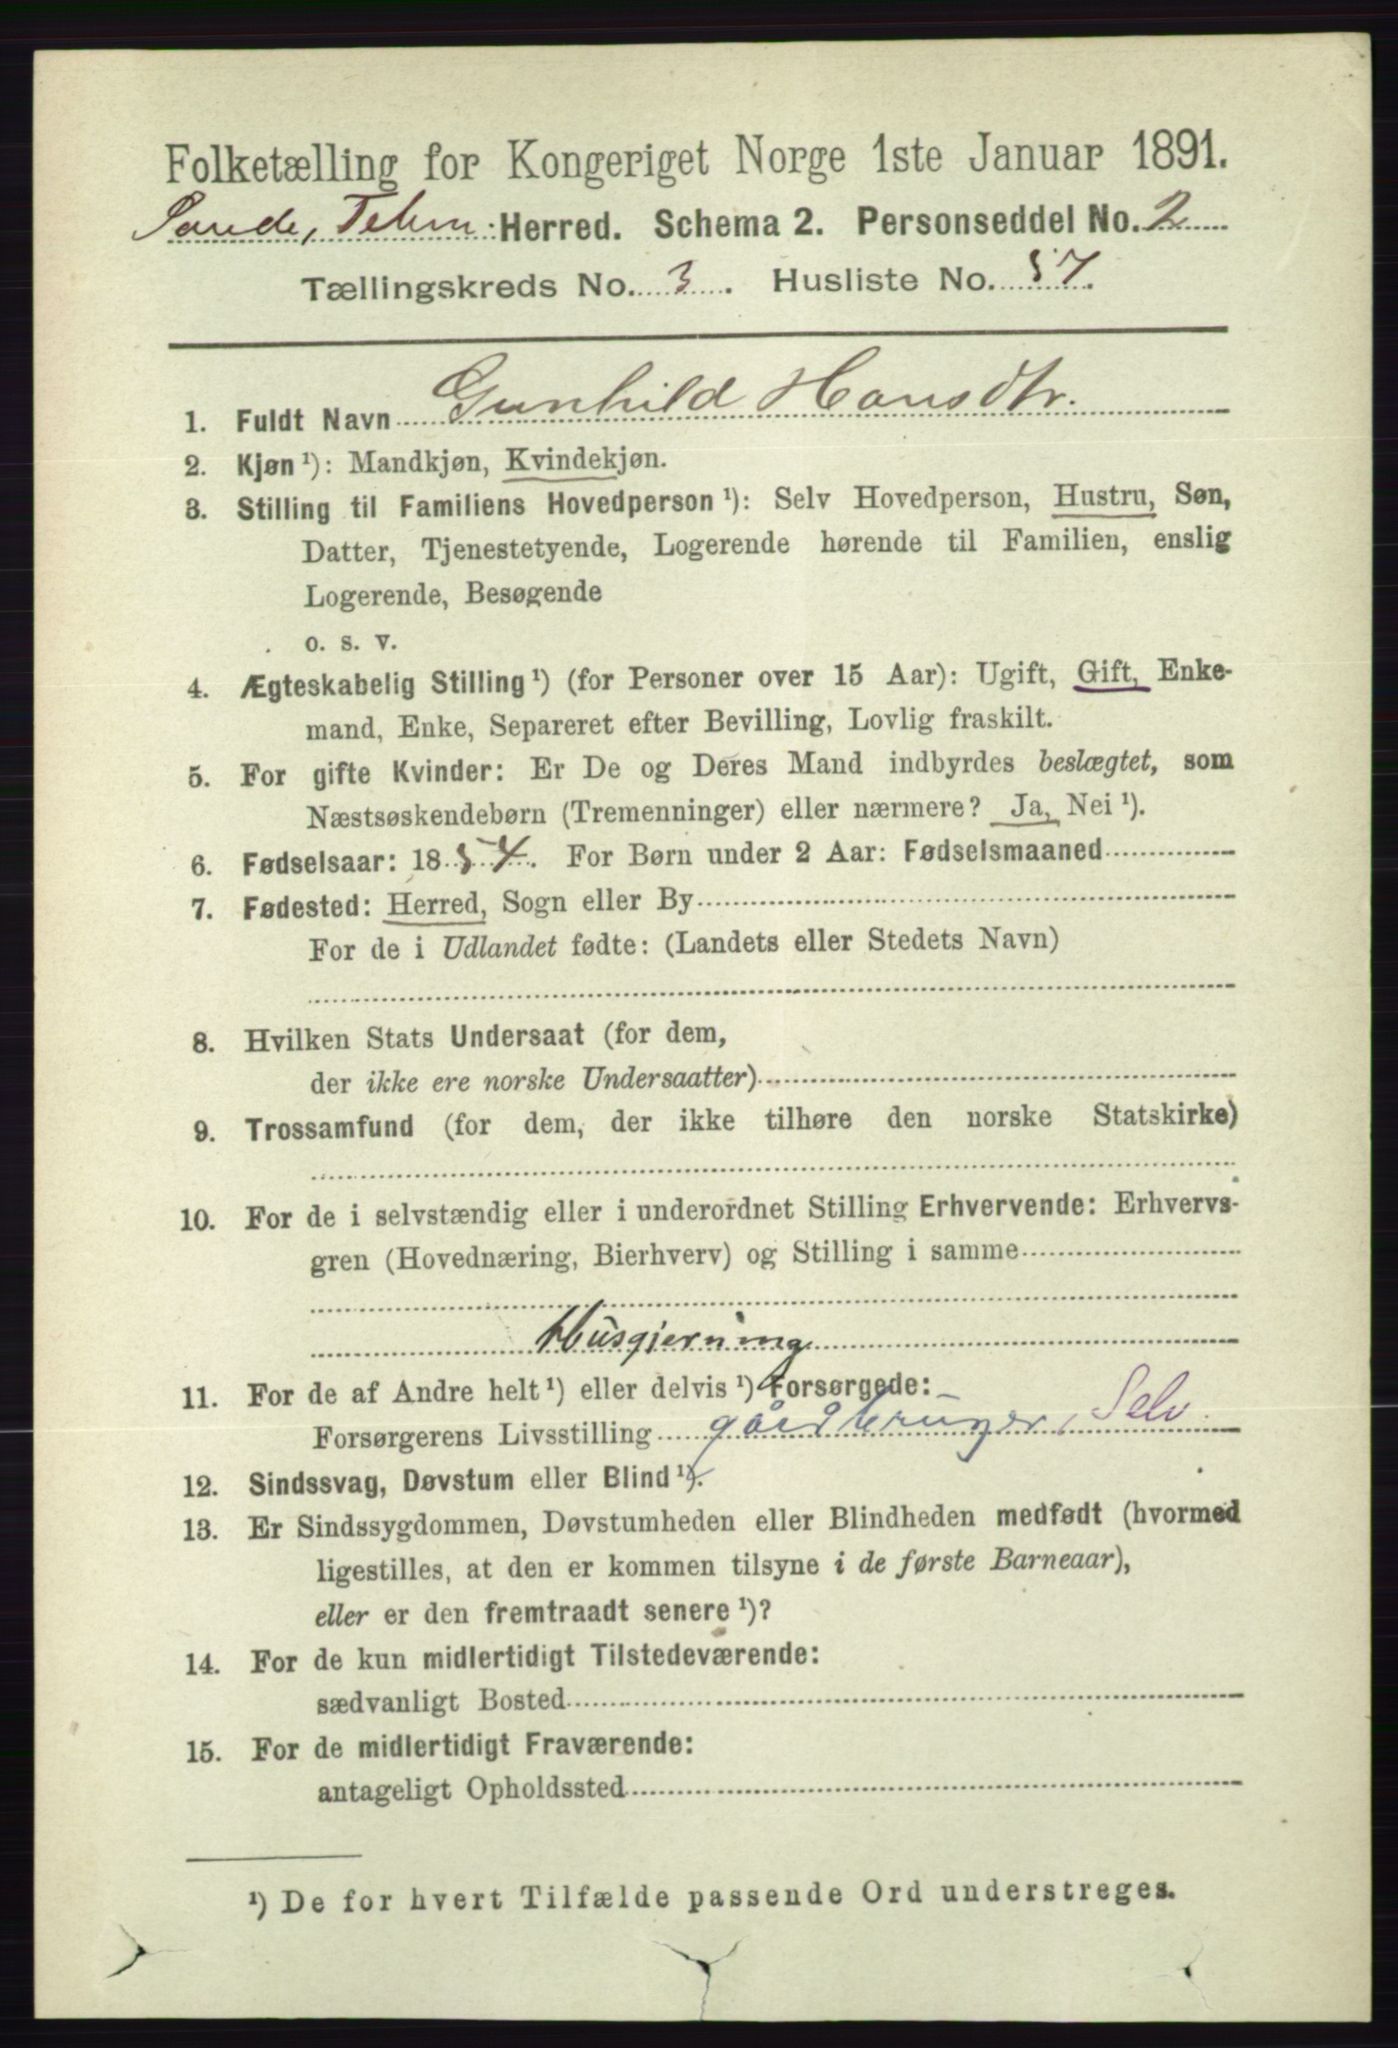 Folketælling for Kongeriget Norge 1ste Januar 1891.
Saude, Telem: Herred. Schema 2. Personseddel No. 2
Tællingskreds No. 3. Husliste No. 57.
1. Fuldt Navn Gunhild Hansdtr.
2. Kjøn ¹): Mandkjøn, Kvindekjøn.
3. Stilling til Familiens Hovedperson ¹): Selv Hovedperson, Hustru, Søn,
Datter, Tjenestetyende, Logerende hørende til Familien, enslig
Logerende, Besøgende
o. s. v.
4. Ægteskabelig Stilling ¹) (for Personer over 15 Aar): Ugift, Gift, Enke-
mand, Enke, Separeret efter Bevilling, Lovlig fraskilt.
5. For gifte Kvinder: Er De og Deres Mand indbyrdes beslægtet, som
Næstsøskendebørn (Tremenninger) eller nærmere? Ja, Nei ¹).
6. Fødselsaar: 1854. For Børn under 2 Aar: Fødselsmaaned
7. Fødested: Herred, Sogn eller By
For de i Udlandet fødte: (Landets eller Stedets Navn)
8. Hvilken Stats Undersaat (for dem,
der ikke ere norske Undersaatter)
9. Trossamfund (for dem, der ikke tilhøre den norske Statskirke)
10. For de i selvstændig eller i underordnet Stilling Erhvervende: Erhvervs-
gren (Hovednæring, Bierhverv) og Stilling i samme
Husgjerning
11. For de af Andre helt ¹) eller delvis ¹) Forsørgede:
Forsørgerens Livsstilling gårdbruger, Selv.
12. Sindssvag, Døvstum eller Blind ¹).
13. Er Sindssygdommen, Døvstumheden eller Blindheden medfødt (hvormed
ligestilles, at den er kommen tilsyne i de første Barneaar),
eller er den fremtraadt senere ¹)?
14. For de kun midlertidigt Tilstedeværende:
sædvanligt Bosted
15. For de midlertidigt Fraværende:
antageligt Opholdssted
¹) De for hvert Tilfælde passende Ord understreges.